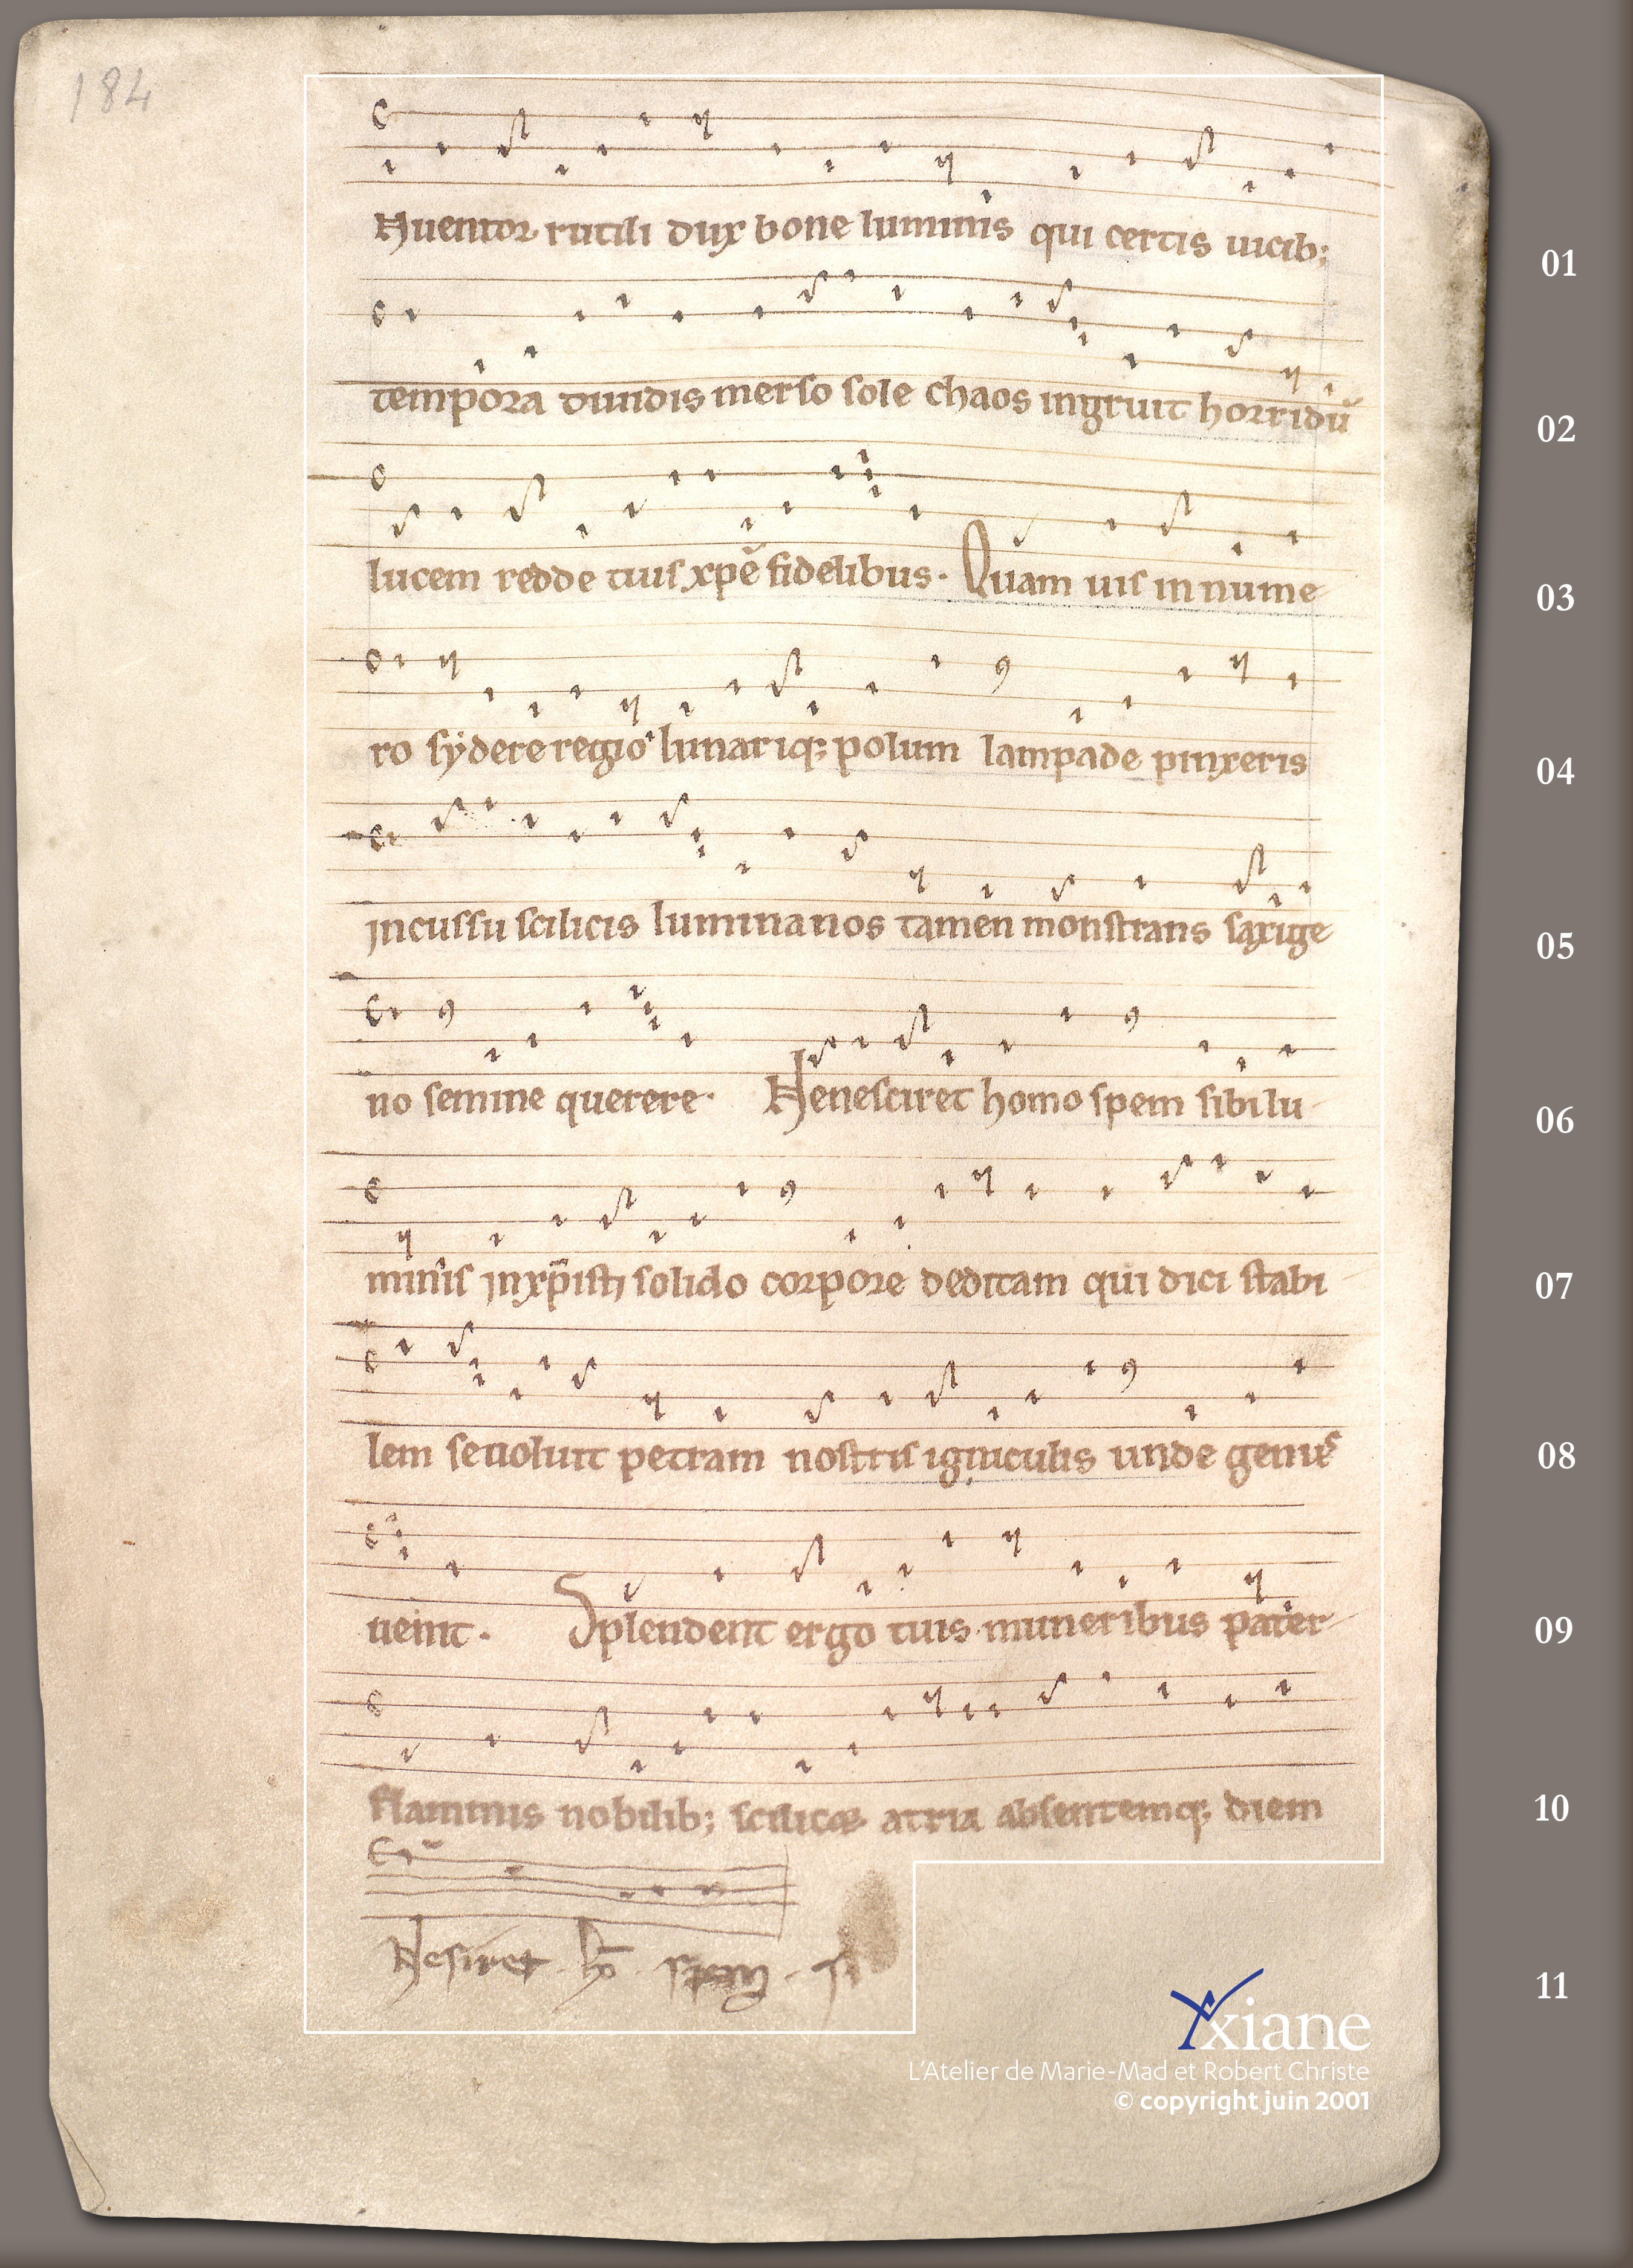 184
Huentor rutili dux bone luminis qui certis uicib;
01
tempora diuidis merso sole chaos ingruit horridū
02
lucem redde tuis xpē fidelibus. Quam uis innume
03
ro sÿdere regio lunariq; polum lampade pinxeris
04
incussu scilicis lumina nos tamen monstrans saxige
05
no semine querere. Ne nesciret homo spem sibi lu
06
minis inxp̄isti solido corpore deditam qui dici stabi
07
lem se uoluit petram nostris igniculis unde genus
08
uenit. Splendent ergo tuis muneribus pater
09
flaminis nobilib; scilicæ atria absentemq; diem
10
Nesiret. ho̅. spem. si
11
Axiane
L'Atelier de Marie-Mad et Robert Christe
© copyright juin 2001